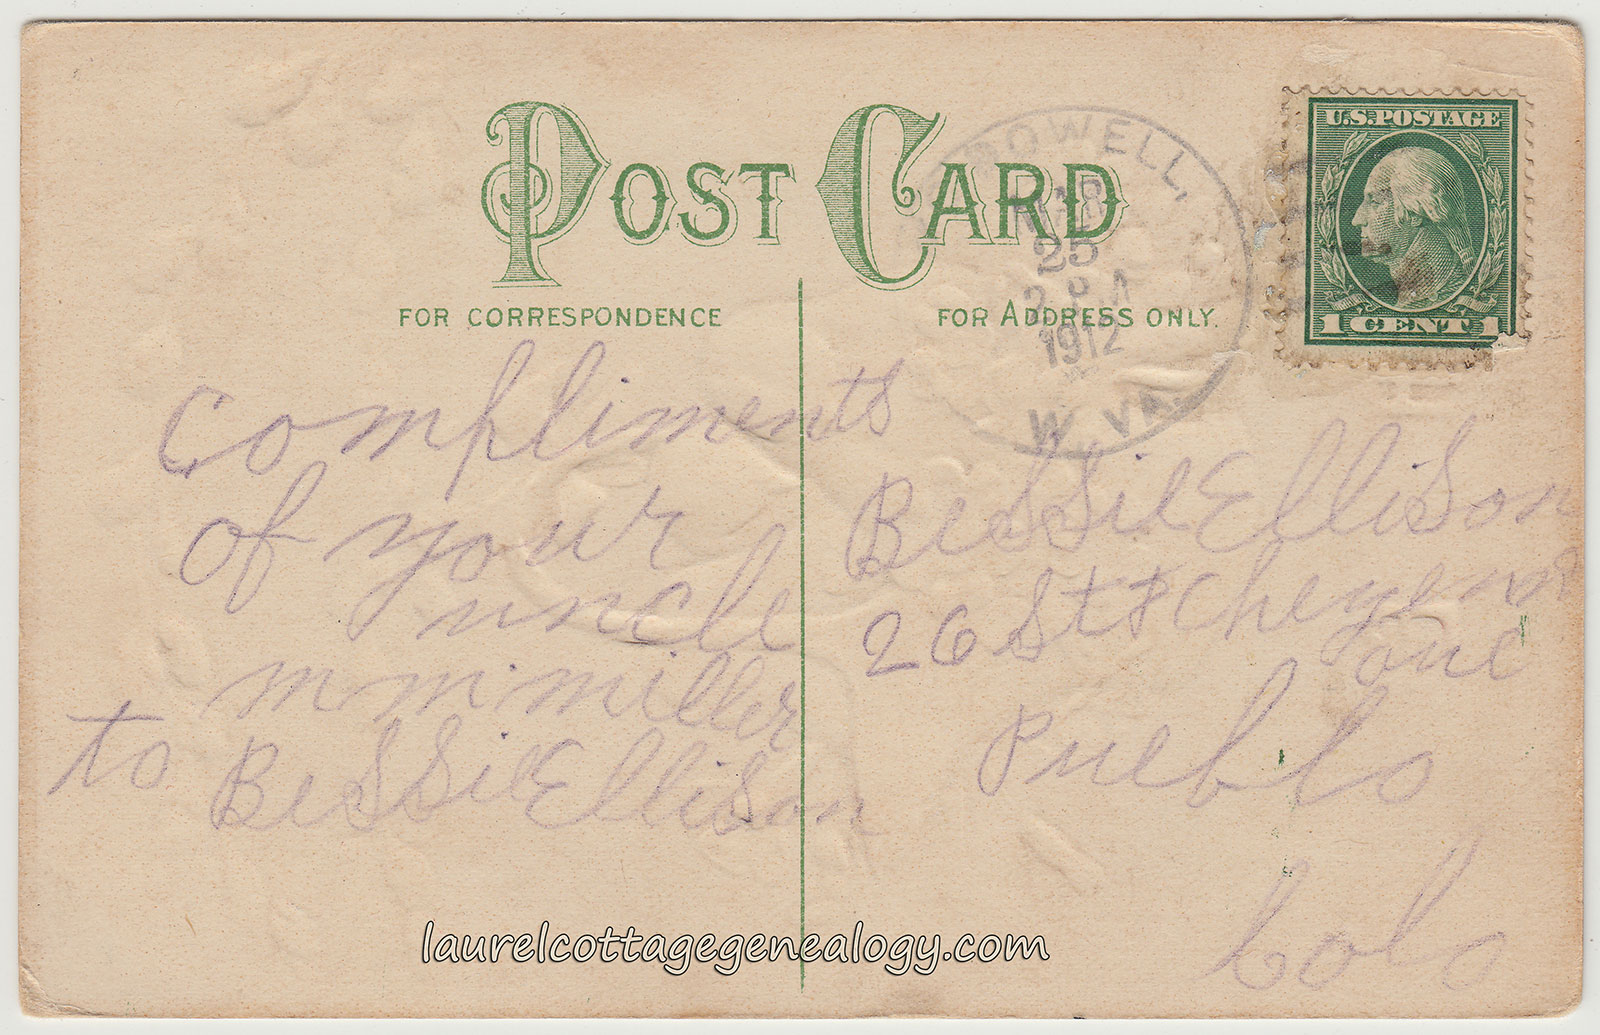 POST CARD
FOR CORRESPONDENCE
FOR ADDRESS ONLY.
U.S. POSTAGE
1 CENT 1
25
1912
W. VA.
Compliments
of your
uncle
m m miller
to Bessie Ellison
Bessie Ellison
26 St &
Pueblo
Colo
laurelcottagegenealogy.com